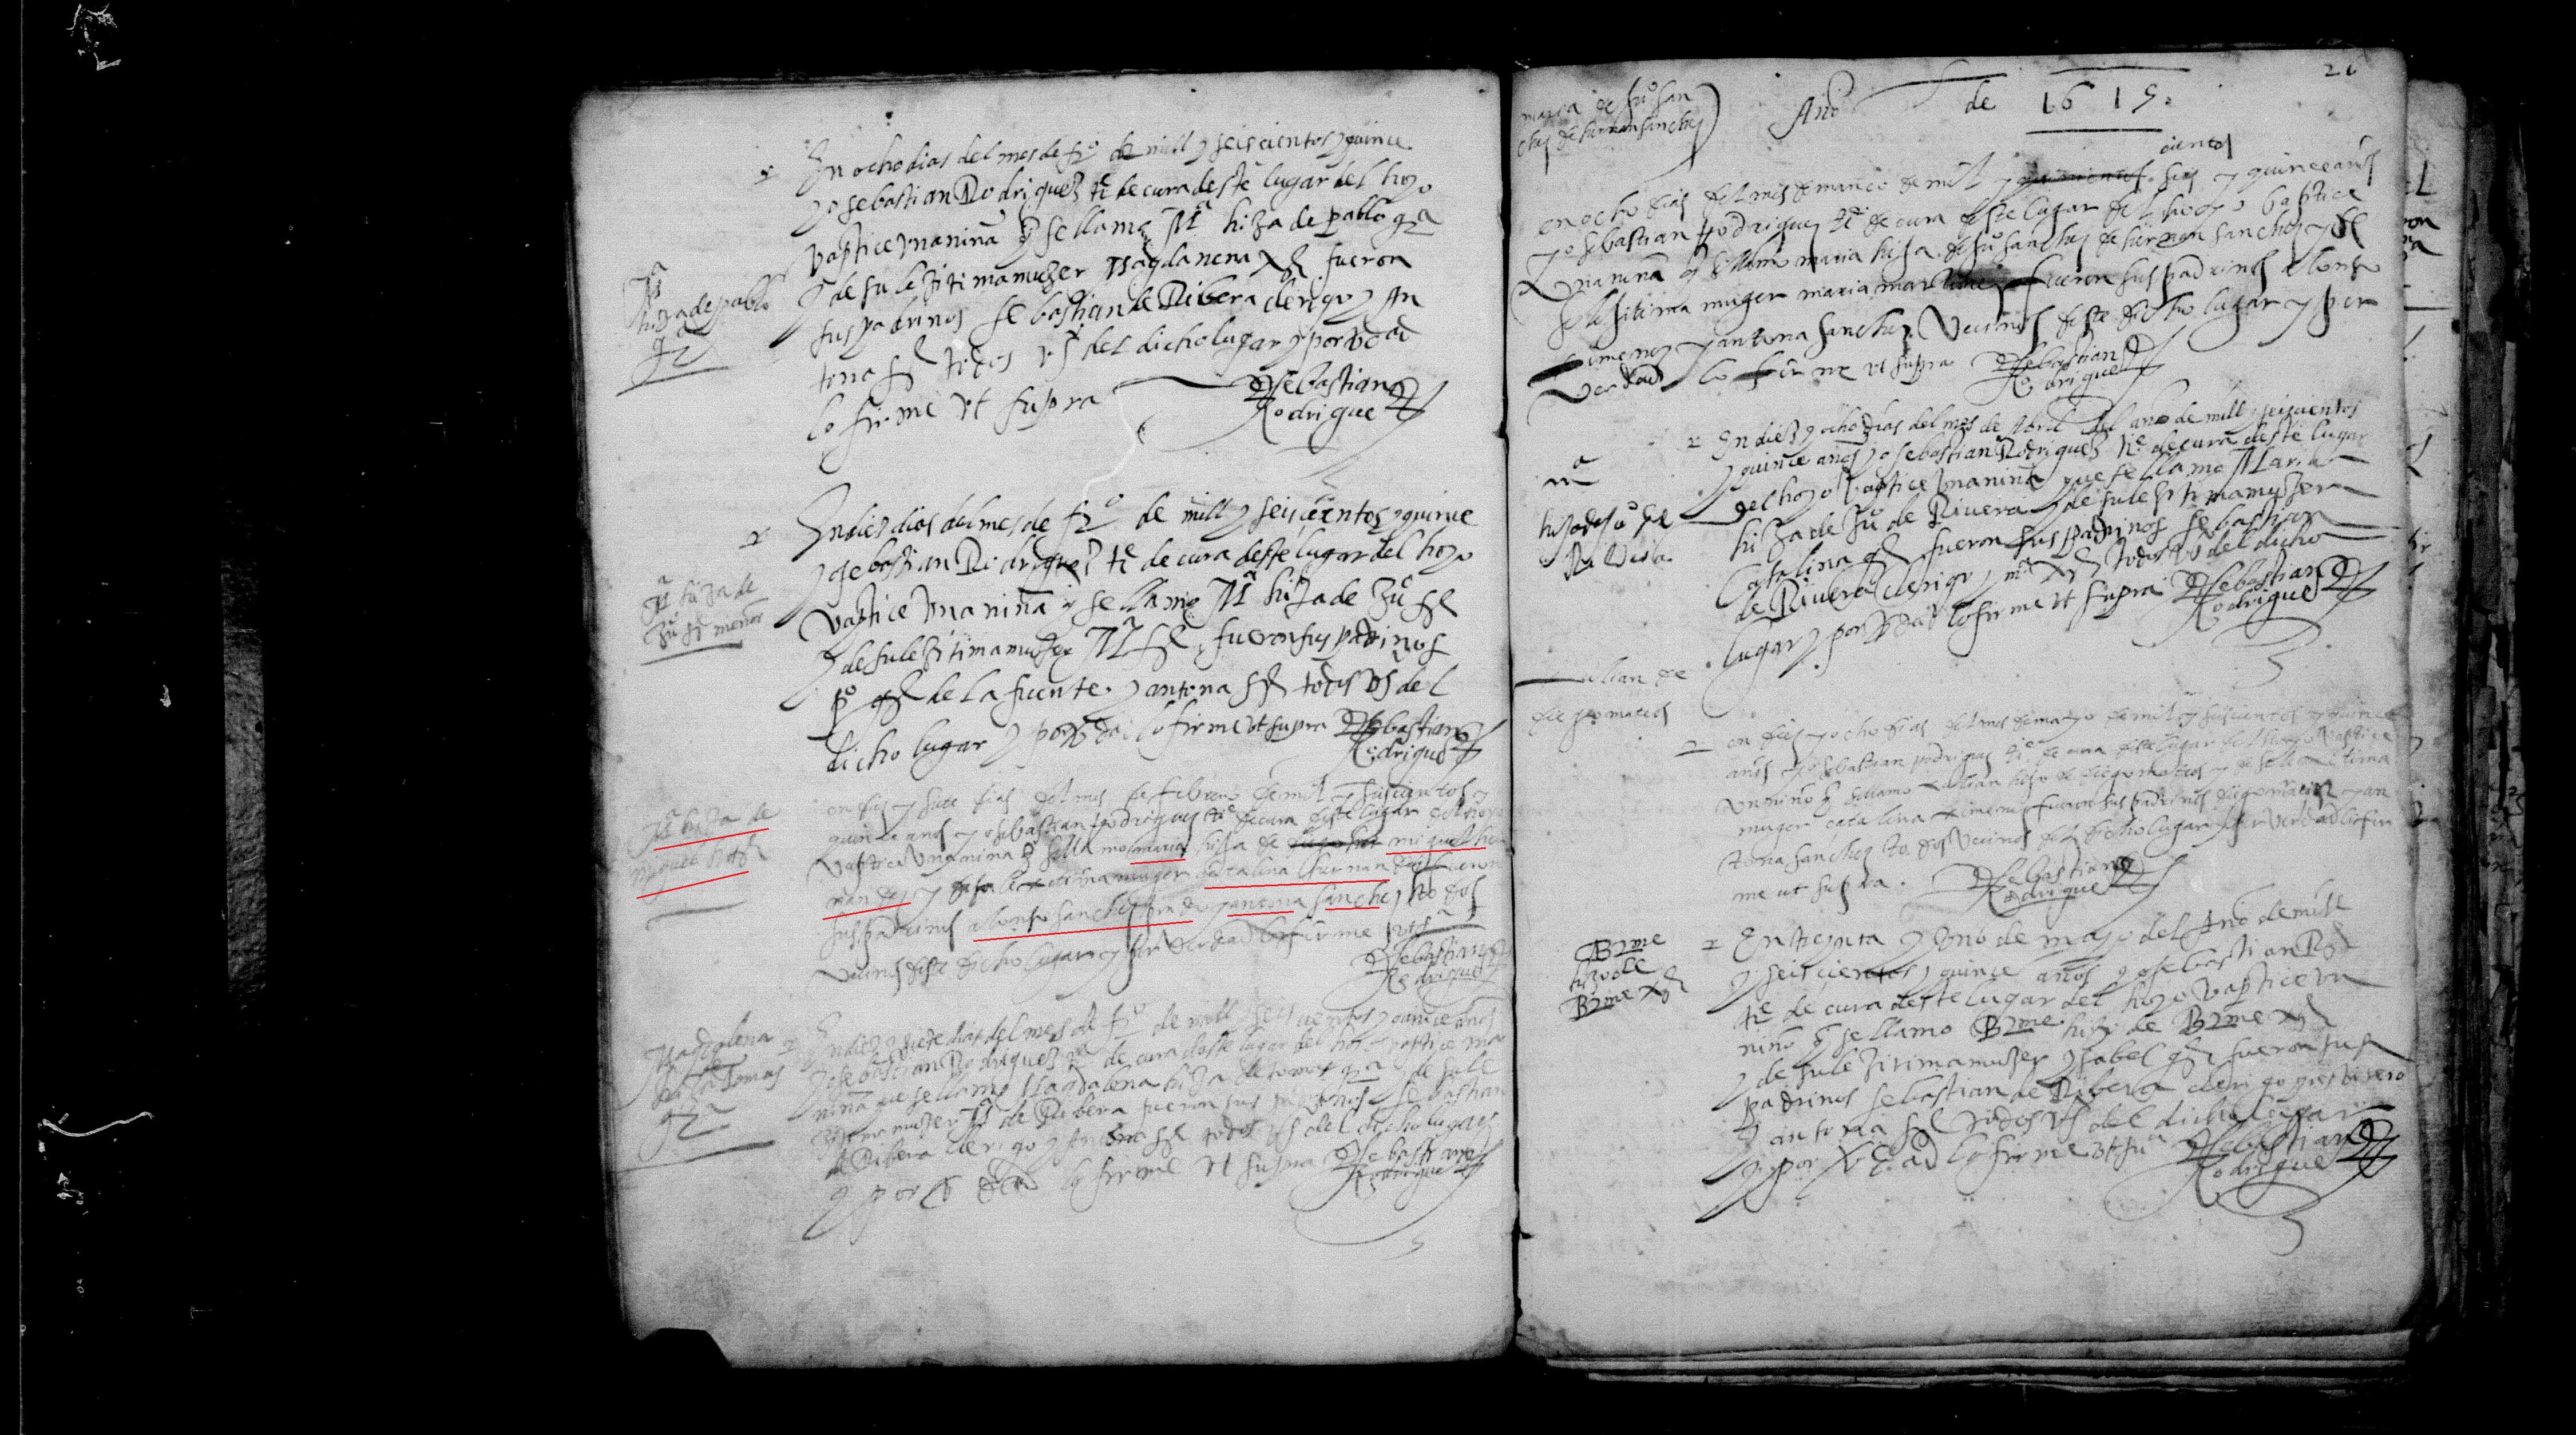 En ocho dias del mes de frº de mill y seiscientos y quince
yo sebastian Rodriguez te de cura deste lugar del hoyo
baptice una niña q se llama Mª hiza de pablo gª
y de su lezitima muzer Magdanena xz fueron
sus padrinos sebastian de Ribera clerigo y an
tona sz todos vs del dicho lugar y por vdad
lo firme ut supra
Sebastian
Rodriguez
Mª
hiza de pablo
gª
En diez dias del mes de frº de mill y seiscientos y quince
yo sebastian Rodriguez te de cura deste lugar del hoyo
baptice una niña q se llamo Mª hiza de Juº sz
y de su lezitima muzer Mª sz fueron sus padrinos
pº gz de la fuente y antona sz todos vs del
dicho lugar y por vdad lo firme ut supra
Sebastian
Rodriguez
Mª hiza de
Juº sz menor
en dies y siete dias del mes de febrero de mil y seiscientos y
quince anos yo sebastian rodrigues te de cura deste lugar del hoyo
baptice una nina q se llamo maria hija de miguel her
nandez y de su lexitima muger catalina hernandez fueron
sus padrinos alonso sanchez y antona sanchez todos
vecinos deste dicho lugar y por verdad lo firme ut sª
Sebastian
Rodriguez
Mª hiza de
miguel
En diez y siete dias del mes de frº de mill y seiscientos y quince años
yo sebastian Rodriguez te de cura deste lugar del hoyo baptice una
niña que se llamo Magdalena hiza de tomas gª y de su le
zitima muzer Mª de Ribera fueron sus padrinos sebastian
de Ribera clerigo y antona sz todos vs del dicho lugar
y por vdad lo firme ut supra
Sebastian
Rodriguez
Magdalena
hiza de tomas
gª
26
Año de 1615
maria de Juº san
chez de hernan sanchez
cientos
en ocho dias del mes de março de mil y seis y quince años
yo sebastian rodriguez te de cura deste lugar del hoyo baptice
una nina q se llamo maria hija de Juº sanchez de hernan sanchez y de
su lesitima muger maria martinez fueron sus padrinos alonso
ximenez y antona sanchez vecinos deste dicho lugar y por
verdad lo firme ut supra
Sebastian
Rodriguez
En diez y ocho dias del mes de Abril del año de mill y seiscientos
y quince años yo sebastian Rodriguez te de cura deste lugar
del hoyo baptice una niña que se llamo Maria
hiza de Juº de Rivera y de su lezitima muzer
Catalina gz fueron sus padrinos sebastian
de Rivera clerigo y mª xz todos vs del dicho
lugar y por vdad lo firme ut supra
Sebastian
Rodriguez
mª
hija de Juº de
Ribera
en dies y ocho dias del mes de mayo de mil y seiscientos y quince
años yo sebastian rodrigues te de cura deste lugar del hoyo baptice
un niño q se llamo Julian hijo de diego mateos y de su lexitima
muger catalina ximenez fueron sus padrinos diego martin y an
tona sanchez todos vecinos del dicho lugar y por verdad lo fir
me ut supra.
Sebastian
Rodriguez
Julian de
diego mateos
En treynta y uno de mayo del año de mill
y seiscientos y quince años yo sebastian Rz
te de cura deste lugar del hoyo baptice un
niño q se llamo Bme hijo de Bme xz
y de su lezitima muzer ysabel gz fueron sus
padrinos sebastian de Ribera clerigo presbitero
y antona sz todos vs del dicho lugar
y por vdad lo firme ut suª
Sebastian
Rodriguez
Bme
hijo de
Bme xz